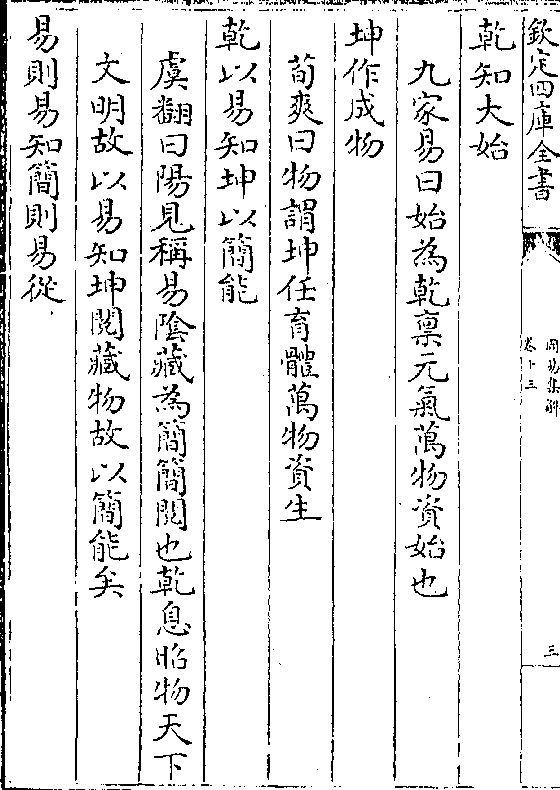 欽定四庫全書
周易集解
卷十三
三
乾知大始
九家易曰始為乾禀元氣萬物資始也
坤作成物
荀爽曰物謂坤任育體萬物資生
乾以易知坤以簡能
虞翻曰陽見稱易隂藏為簡簡閱也乾息昭物天下
文明故以易知坤閱藏物故以簡能矣
易則易知簡則易從